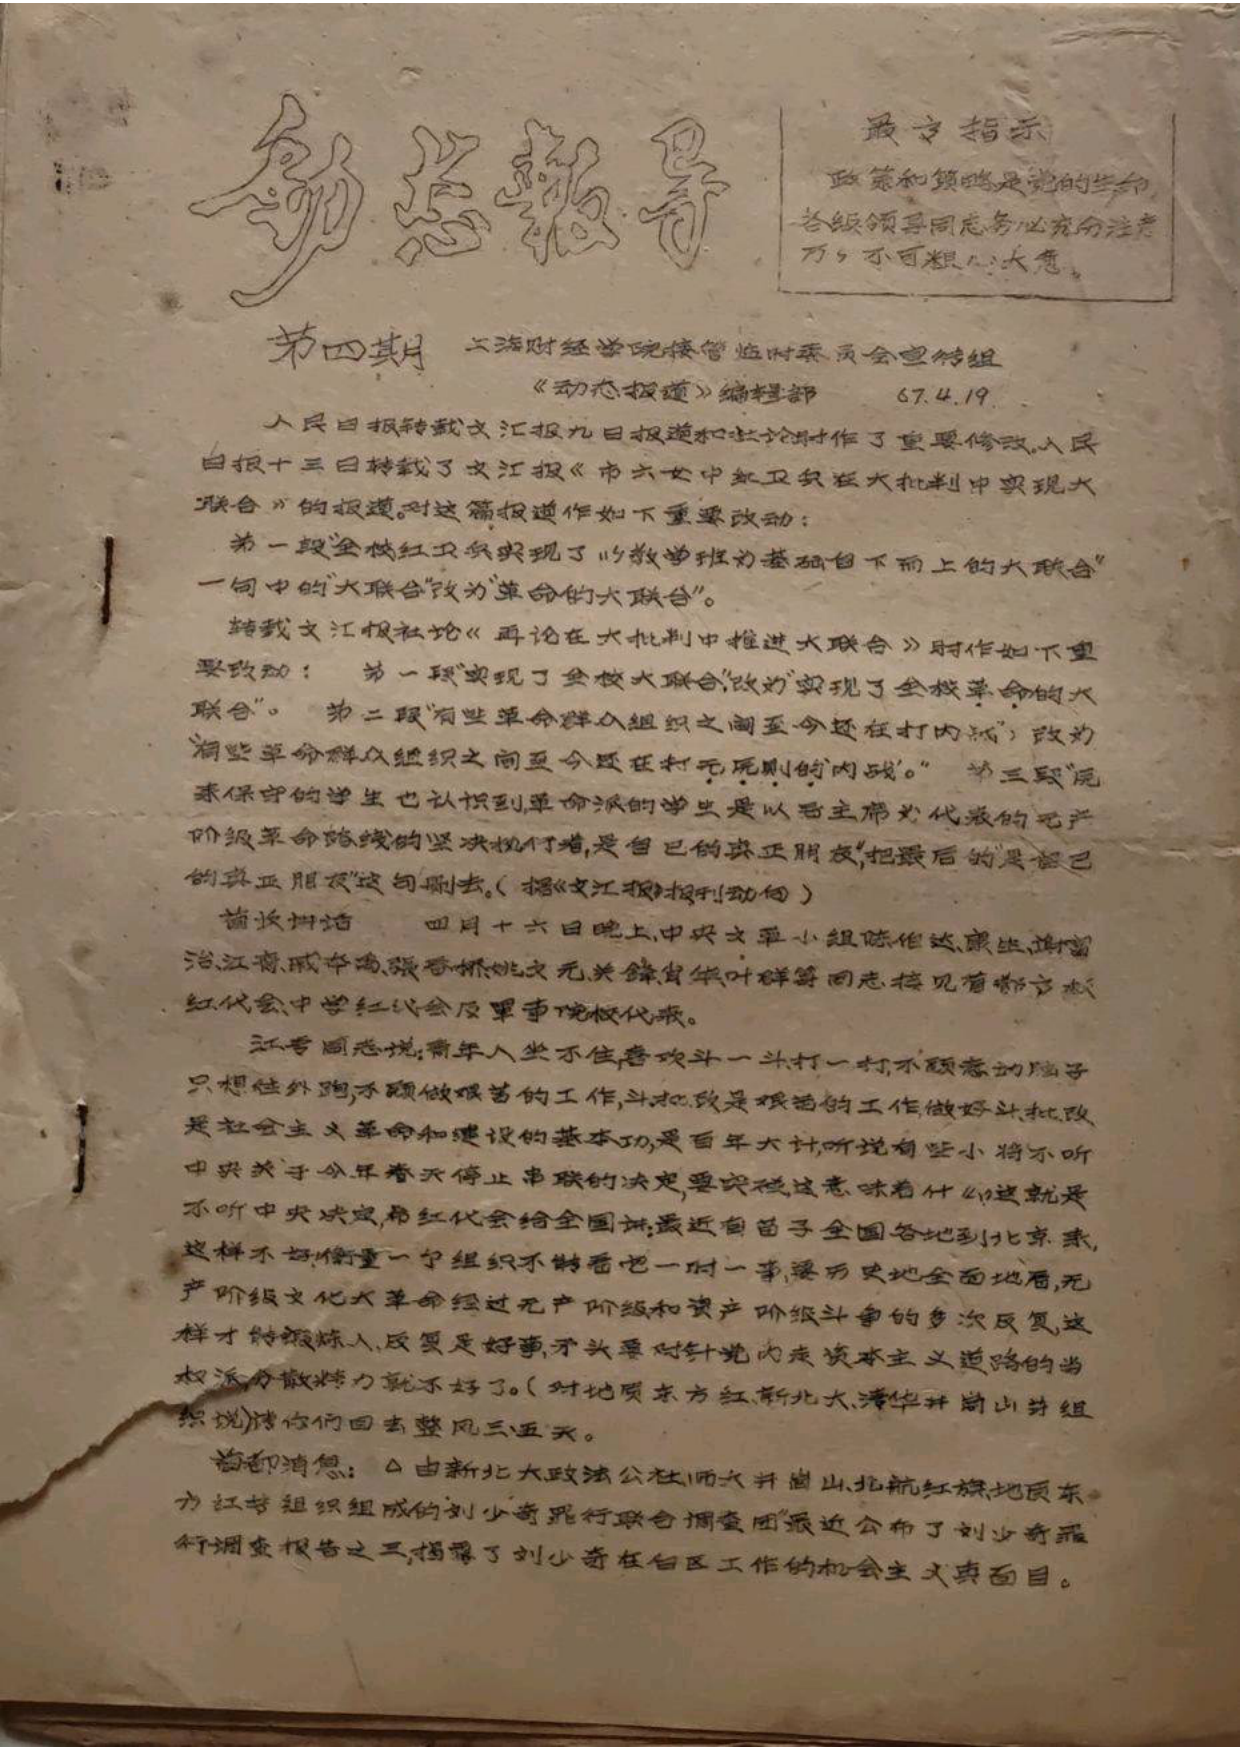 动态报导
最高指示
政策和策略是党的生命,
各级领导同志务必充分注意
万々不可粗心大意。
第四期
上海财经学院接管临时委员会宣传组
《动态报道》编辑部 67.4.19.
人民日报转载文汇报九日报道和社论时作了重要修改。人民
日报十三日转载了文汇报《市六女中红卫兵在大批判中实现大
联合》的报道。对这篇报道作如下重要改动:
第一段“全校红卫兵实现了以教学班为基础自下而上的大联合”
一句中的“大联合”改为“革命的大联合”。
转载文汇报社论《再论在大批判中推进大联合》时作如下重
要改动: 第一段“实现了全校大联合”,改为“实现了全校革命的大
联合”。 第二段“有些革命群众组织之间至今还在打内战”,改为
“有些革命群众组织之间至今还在打无原则的‘内战’。” 第三段“原
来保守的学生也认识到,革命派的学生是以毛主席为代表的无产
阶级革命路线的坚决执行者,是自己的真正朋友”,把最后的“是自己
的真正朋友”这句删去。(据《文汇报》报刊动向)
首长讲话 四月十六日晚上,中央文革小组陈伯达、康生、谢富
治、江青、戚本禹、張春桥、姚文元、关鋒、肖华、叶群等同志接见首都大专
红代会、中学红代会及军事院校代表。
江青同志说:青年人坐不住,喜欢斗一斗,打一打,不愿意动脑子
只想往外跑,不愿做艰苦的工作,斗、批、改是艰苦的工作,做好斗、批、改
是社会主义革命和建设的基本功,是百年大计,听说有些小将不听
中央关于今年春天停止串联的决定,要突破,这意味着什么,这就是
不听中央决定,希红代会给全国讲:最近有苗子全国各地到北京来,
这样不好,衡量一个组织不能看它一时一事,要历史地全面地看,无
产阶级文化大革命经过无产阶级和资产阶级斗争的多次反复,这
样才能锻炼人,反复是好事,矛头要对针党内走资本主义道路的当
权派,分散精力就不好了。(对地质东方红、新北大、清华井岗山等组
织说)请你们回去整风三、五天。
首都消息: △由新北大政法公社、师大井岗山、北航红旗、地质东
方红等组织组成的“刘少奇罪行联合调查团”最近公布了刘少奇罪
行调查报告之三,揭露了刘少奇在白区工作的机会主义真面目。